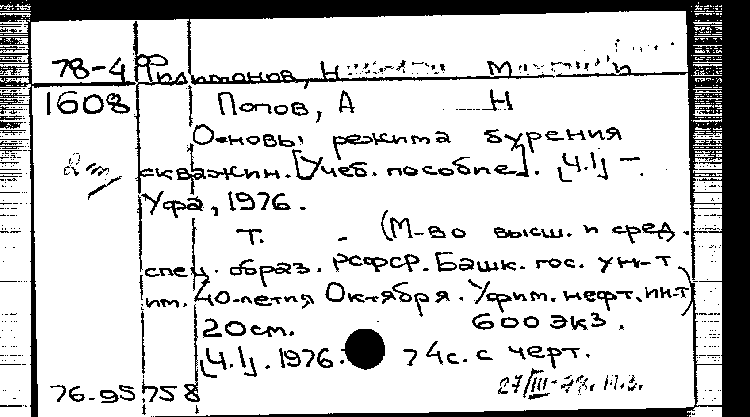 78-4 Филимонов, Н М
1608 Попов, А Н
Основы режима бурения
2 т скважин. [Учеб. пособие]. [Ч.I] —
Уфа, 1976.
т. - (М-во высш. и сред.
спец. образ. РСФСР. Башк. гос. ун-т
им. 40-летия Октября. Уфим. нефт. ин-т)
20 см. 600 экз.
[Ч.I]. 1976. 74 с. с черт.
76-95758 27/III-78. П.З.